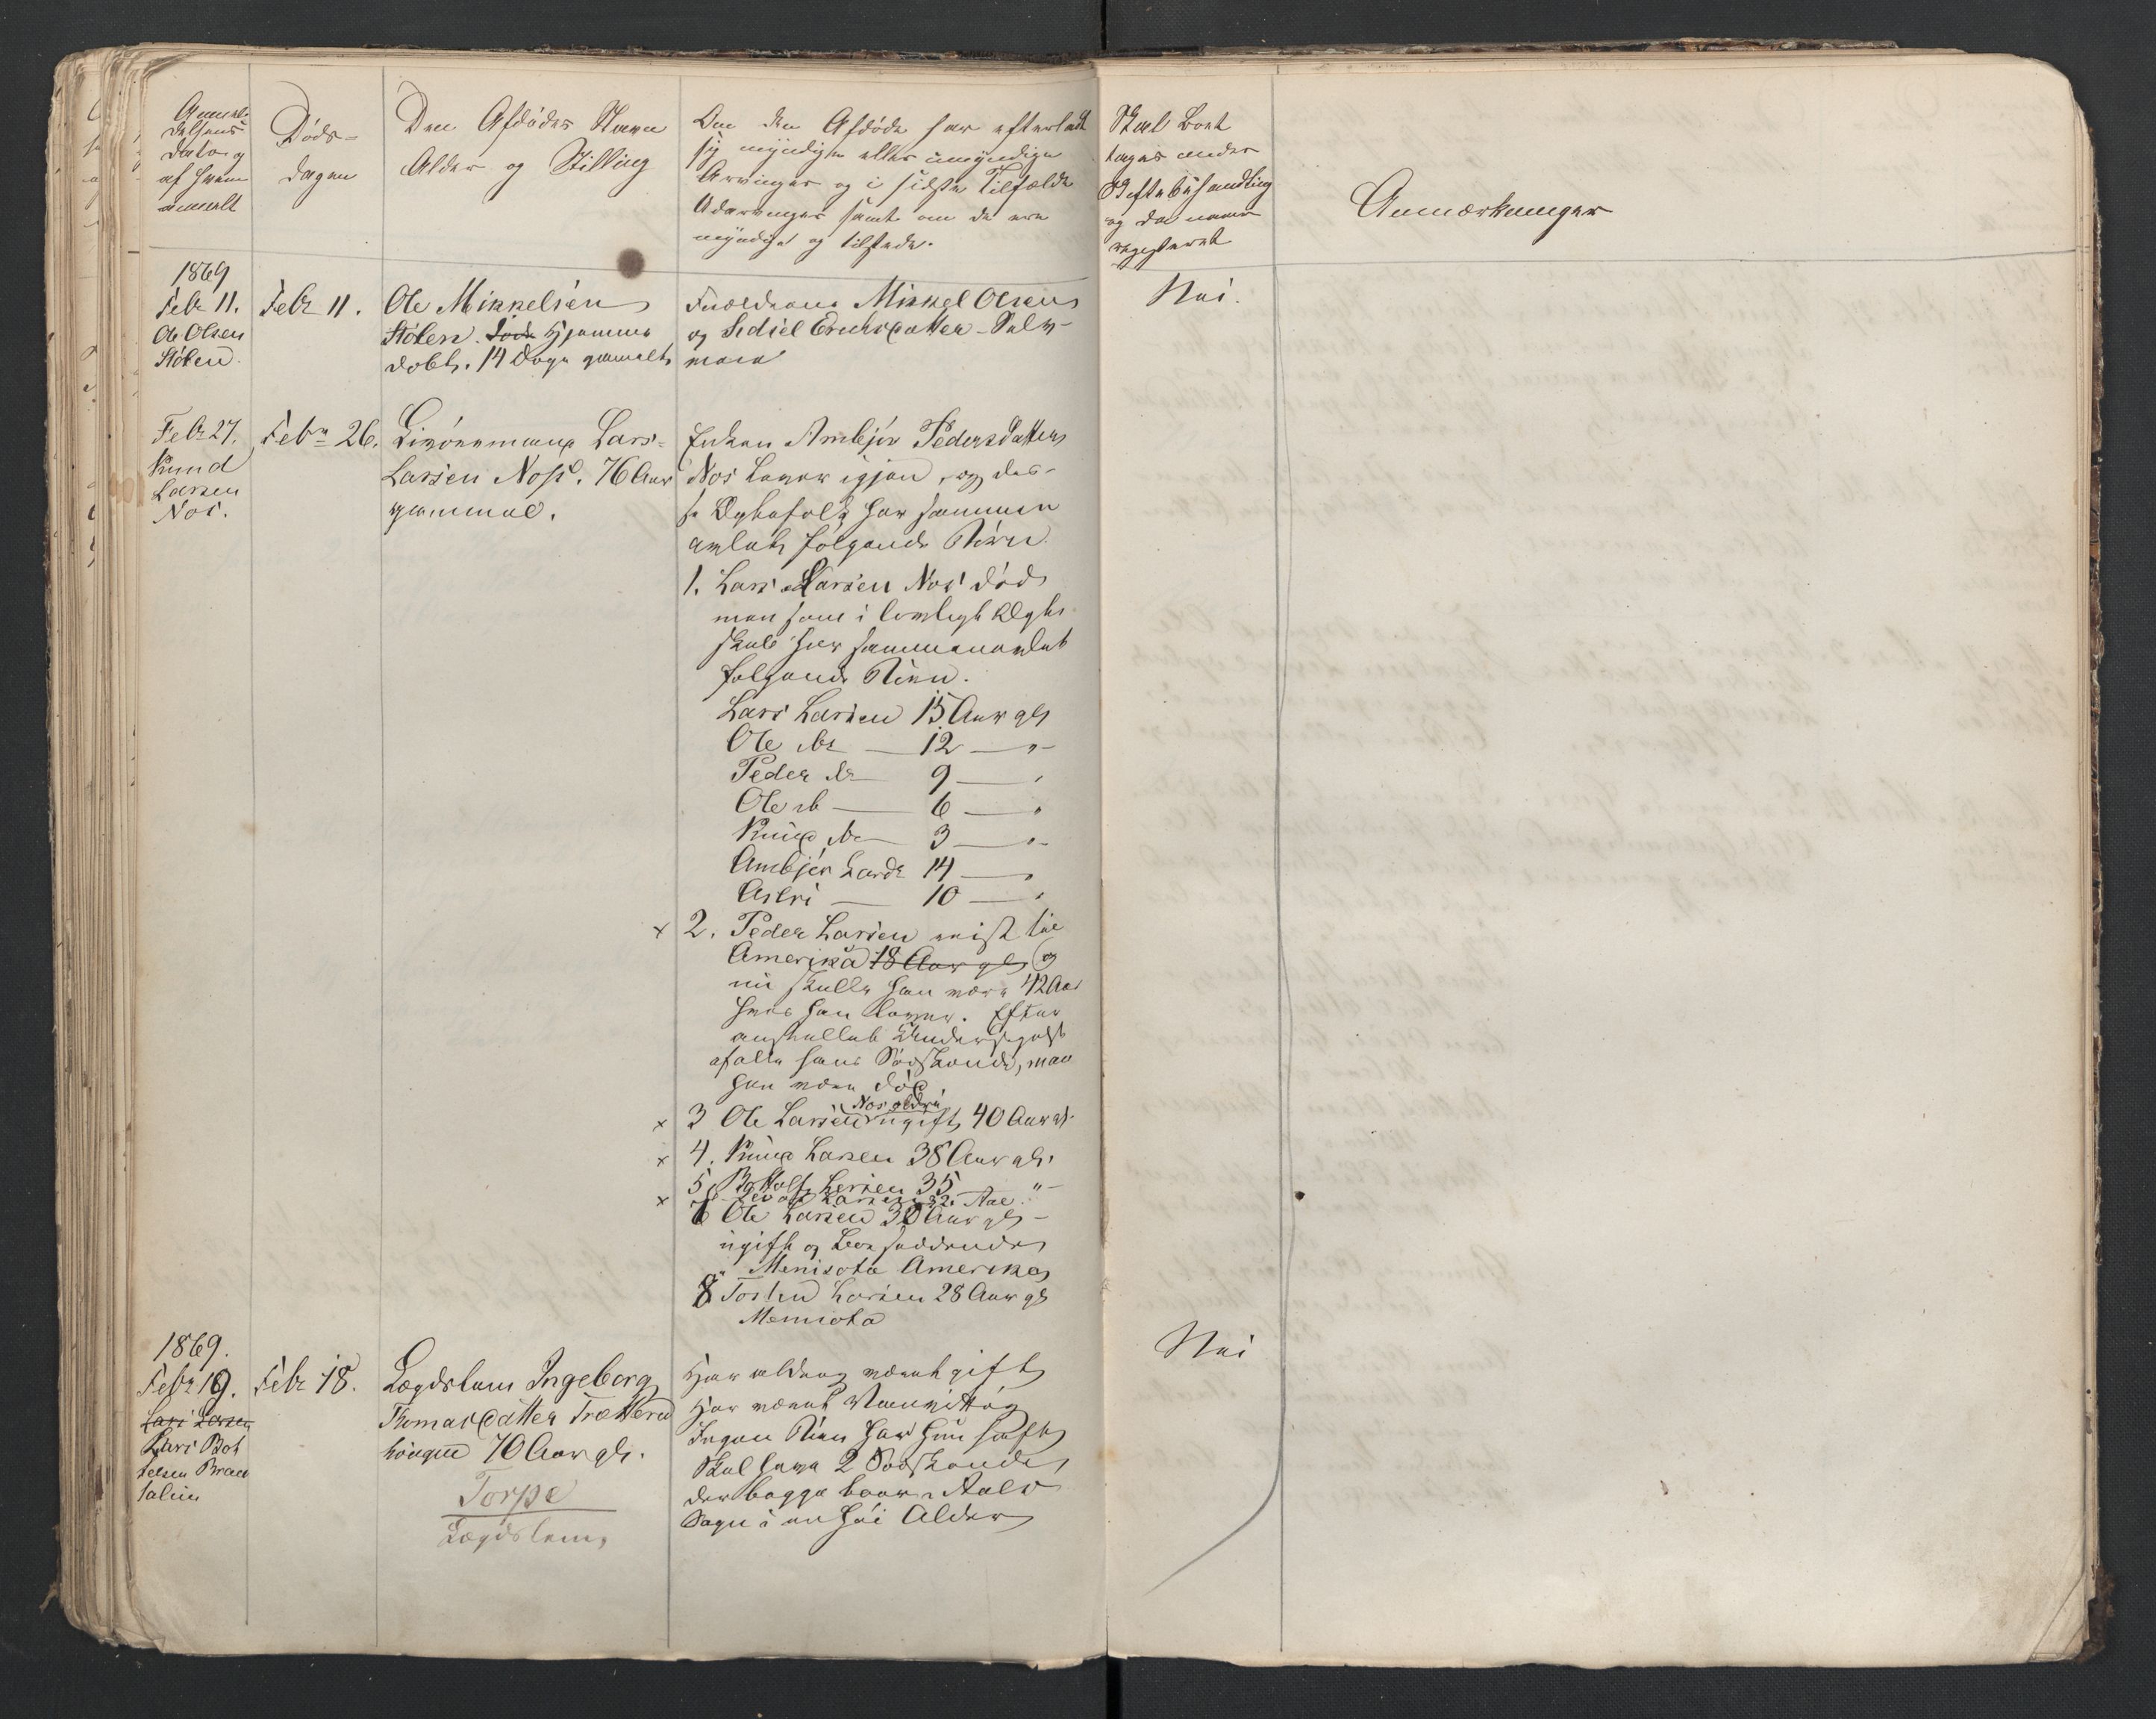 Anmel-
delsens
Dato og
af hvem
anmeldt
Døds-
dagen
Den Afdødes Navn
Alder og Stilling
Om den Afdøde har efterladt
sig myndige eller umyndige
Arvinger og i sidste Tilfælde
Udarvinger samt om de ere
myndige og tilstede.
Skal Boet
tages under
Skiftebehandling
og da naar
registeret
Anmærkninger
1869
Febr 11.
Ole Olsen
Støten
Febr 11.
Ole Mikkelsen
Støten. Død Hjemme
døbt. 14 Dage gammelt
Forældrene Mikkel Olsen
og Sidsel Erichsdatter
Nei.
Febr 27.
Knud
Larsen
Nos.
Febr 26.
Livøremand Lars
Larsen Nos. 76 Aar
gammel.
Enken Ambjør Pedersdatter
Nos Lever igjen, og des-
se Egtefolk har sammen
avlet følgende Børn
1. Lars Larsen Nos død
men som i lovligt Egte
skab har sammenavlet
følgende Børn.
Lars Larsen 15 Aar gl
Ole do — 12 — "
Peder do — 9 — "
Ole do — 6 — "
Knud do — 3 — "
Ambjør Larsd 14 — "
Astri — 10 — "
x 2. Peder Larsen reist til
Amerika 18 Aar gl og
nu skulle han være 42 Aar
hvis han lever. Efter
anstillet Undersøgelse
af alle hans Sødskende, maa
han være død
x 3 Ole Larsen Nos ældre ugift 40 Aar gl.
x 4. Knud Larsen 38 Aar gl.
5 Bottolf Larsen 35 — "
x Larsen 32 Aar
7 Ole Larsen 30 Aar gl —
ugift og Bosiddende
Menisota Amerika
8 Tosten Larsen 28 Aar gl
Menisota
1869.
Febr 19.
Lars Larsen
Lars Bot
telsen Bræn
Febr 18.
Lægdslem Ingeborg
Thomasdatter Trætterud
houguen 70 Aar gl.
Torpe
Lægdslem
Har aldrig været gift
Har været Vanvittig
Ingen Børn har hun havt
Skal have 2 Sødskende
der begge boer i Aals
Sogn i en høi Alder
Nei